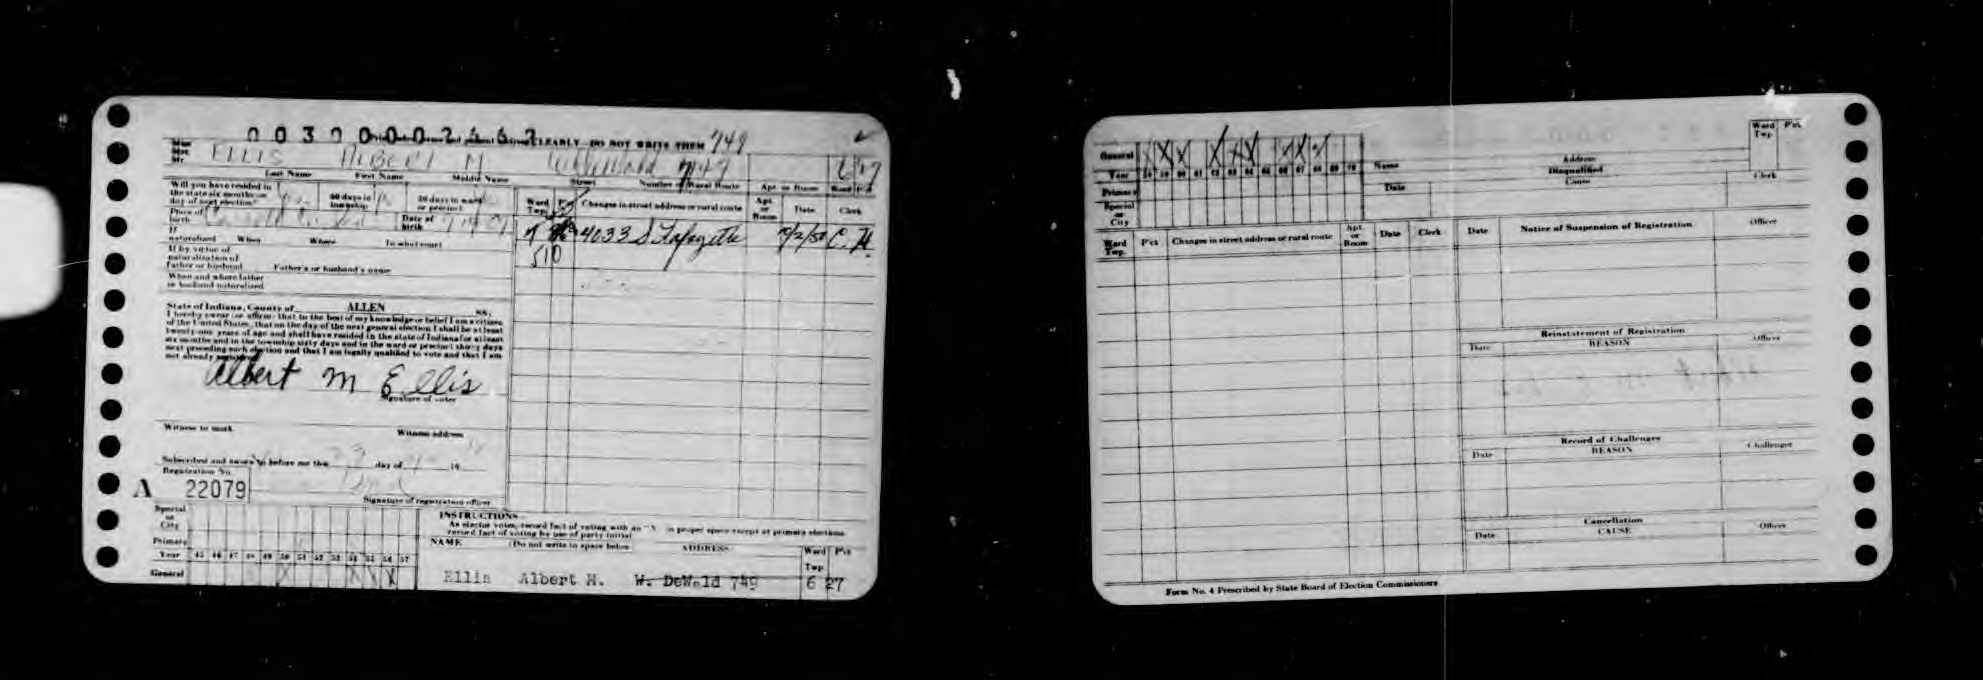 CLEARLY DO NOT WRITE THEM 749
Mr. ELLIS Albert M 747
Last Name First Name Middle Name Street Number or Rural Route Apt. or Room Ward Pct
Will you have resided in
the state six months on 60 days in 30 days in ward
day of next election? township or precinct
Place of birth Date of birth
If naturalized When Where In what court
If by virtue of
naturalization of
Father or husband Father's or husband's name
When and where father
or husband naturalized
Ward Twp. Changes in street address or rural route Apt. or Room Date Clerk
4033 S Lafayette C. H.
510
State of Indiana, County of ALLEN ss,
I hereby swear or affirm that to the best of my knowledge or belief I am a citizen
of the United States, that on the day of the next general election I shall be at least
twenty-one years of age and shall have resided in the state of Indiana for at least
six months and in the township sixty days and in the ward or precinct thirty days
next preceding such election and that I am legally qualified to vote and that I am
not already
Albert M Ellis
Signature of voter
Witness to mark Witness address
Subscribed and sworn to before me this day of 19
Registration No.
A 22079
Signature of registration officer
Special or City
Primary
Year 45 46 47 48 49 50 51 52 53 54 55 56 57
General X X X X
INSTRUCTIONS
As elector votes, record fact of voting with an "X" in proper space except at primary elections
record fact of voting by use of party initial
NAME (Do not write in space below ADDRESS Ward Twp. Pct
Ellis Albert M. W. DeWald 749 6 27
General
Year 58 59 60 61 62 63 64 65 66 67 68 69 70
Primary
Special or City
Name Address Ward Twp. Pct.
Disqualified
Date Cause Clerk
Ward Twp. Pct Changes in street address or rural route Apt. or Room Date Clerk
Date Notice of Suspension of Registration Officer
Reinstatement of Registration
Date REASON Officer
Record of Challenges
Date REASON Challenger
Cancellation
Date CAUSE Officer
Form No. 4 Prescribed by State Board of Election Commissioners